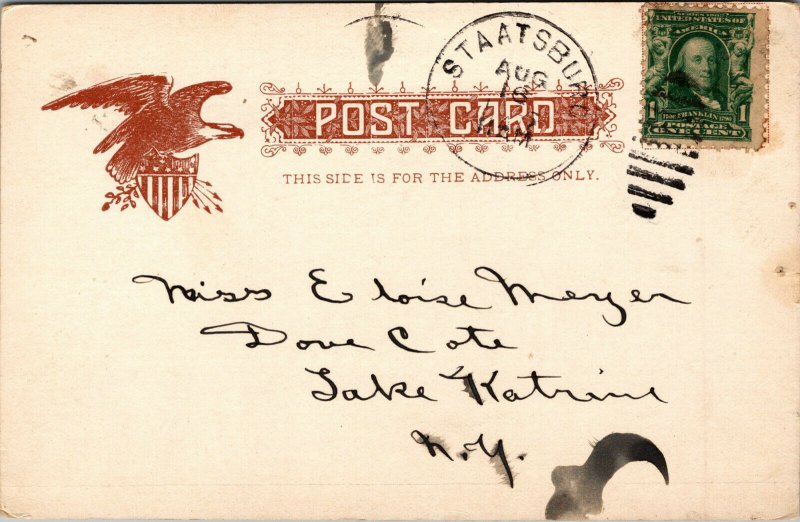 STAATSBURG
AUG
UNITED STATES OF
AMERICA
POST CARD
1 1
POSTAGE
ONE CENT
THIS SIDE IS FOR THE ADDRESS ONLY.
Miss Eloise Meyer
Dove Cote
Lake Katrine
N.Y.